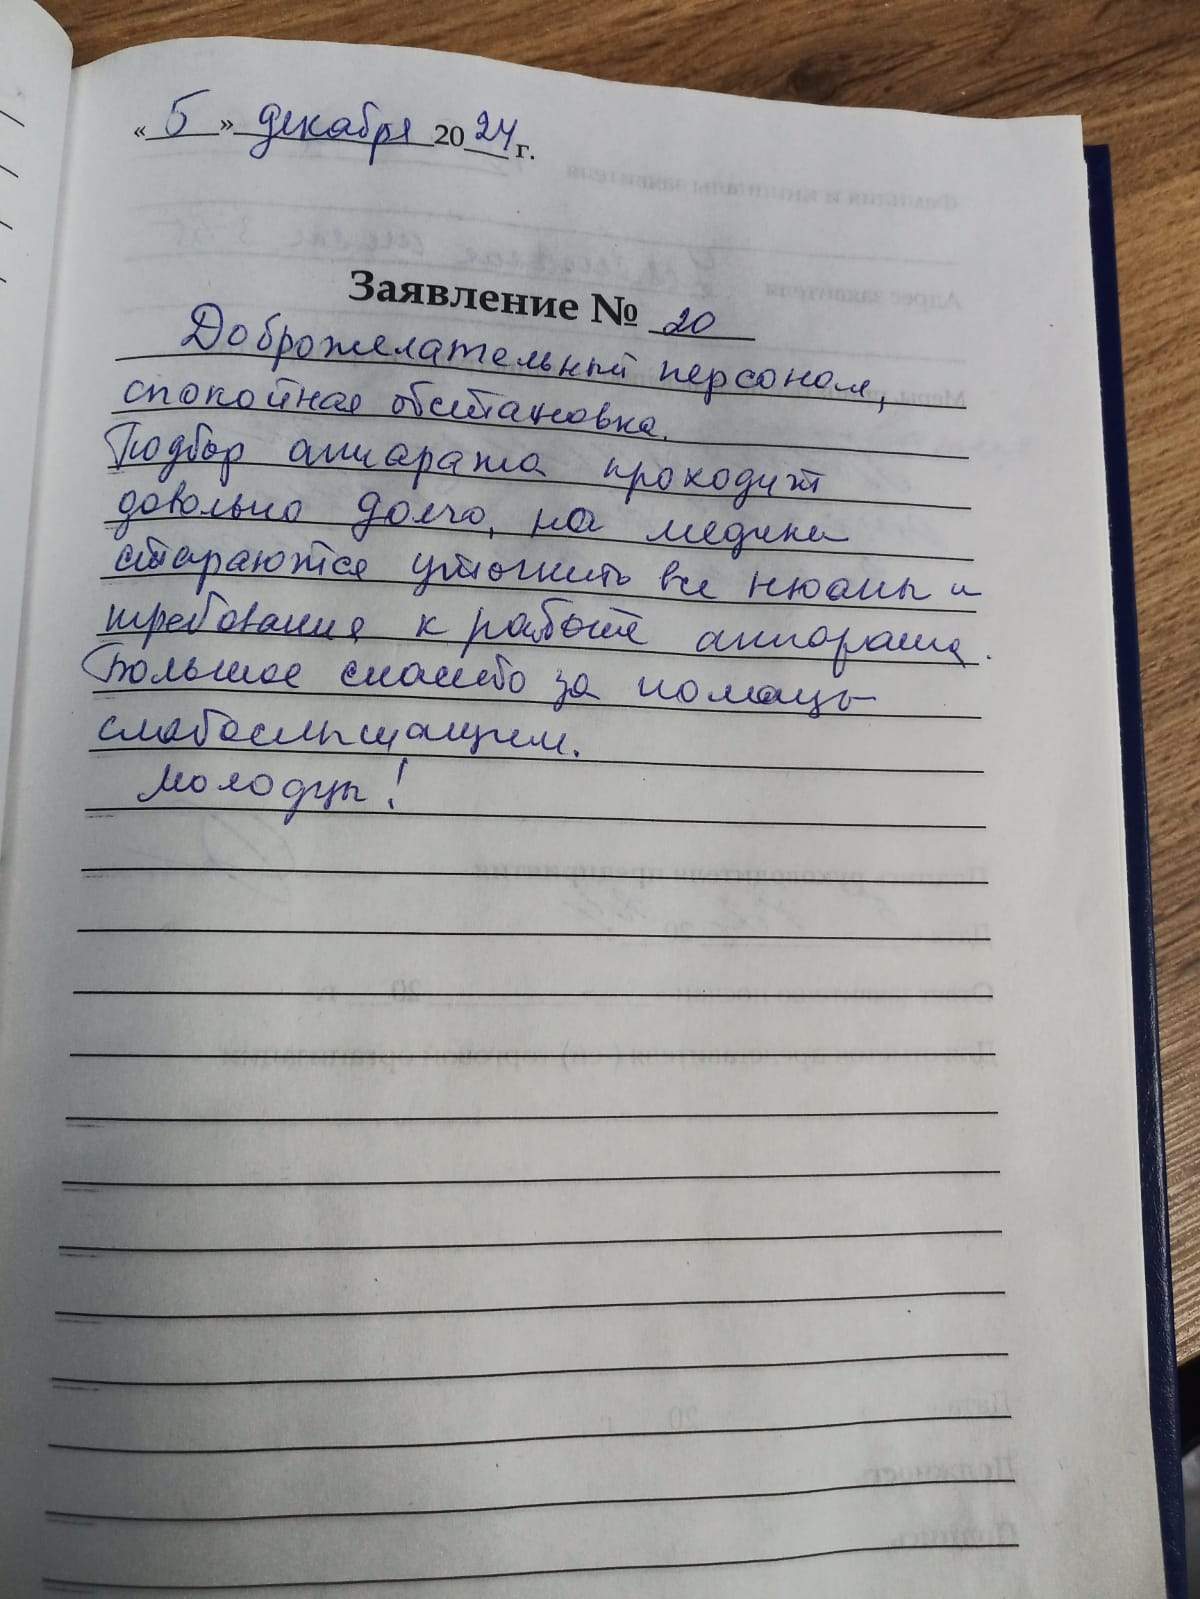 «5» декабря 2024 г.
Заявление № 20
Доброжелательный персонал,
спокойная обстановка.
Подбор аппарата проходит
довольно долго, но медики
стараются уточнить все нюансы и
требования к работе аппарата.
Большое спасибо за помощь
слабослышащим.
Молодцы!